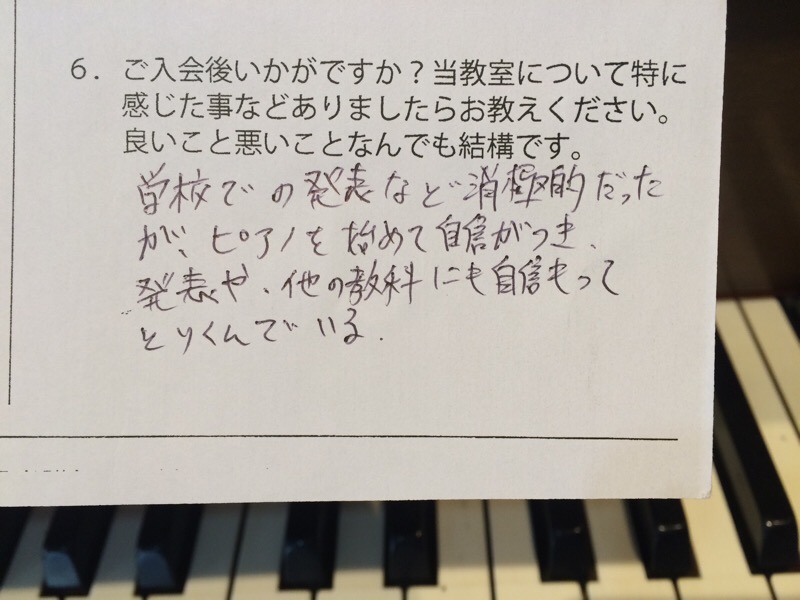 6. ご入会後いかがですか？当教室について特に
感じた事などありましたらお教えください。
良いこと悪いことなんでも結構です。
学校での発表など消極的だった
が、ピアノを始めて自信がつき、
発表や、他の教科にも自信もって
とりくんでいる.